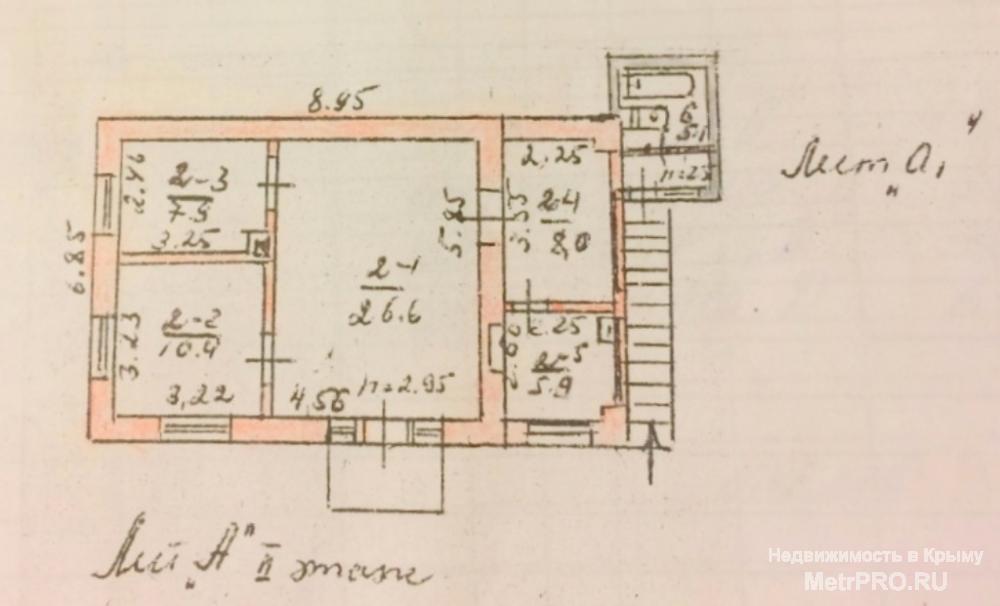 8.95
6
5.1
h=2.5
Лит „А₁"
2-3
7.9
2.46
3.25
6.85
2-1
26.6
5.85
2.25
2-4
8,0
3.55
2-2
10.4
3.23
3,22
4,56
h=2.95
2.25
2-5
5.9
2.60
Лит „А" II этаж
Недвижимость в Крыму
MetrPRO.RU